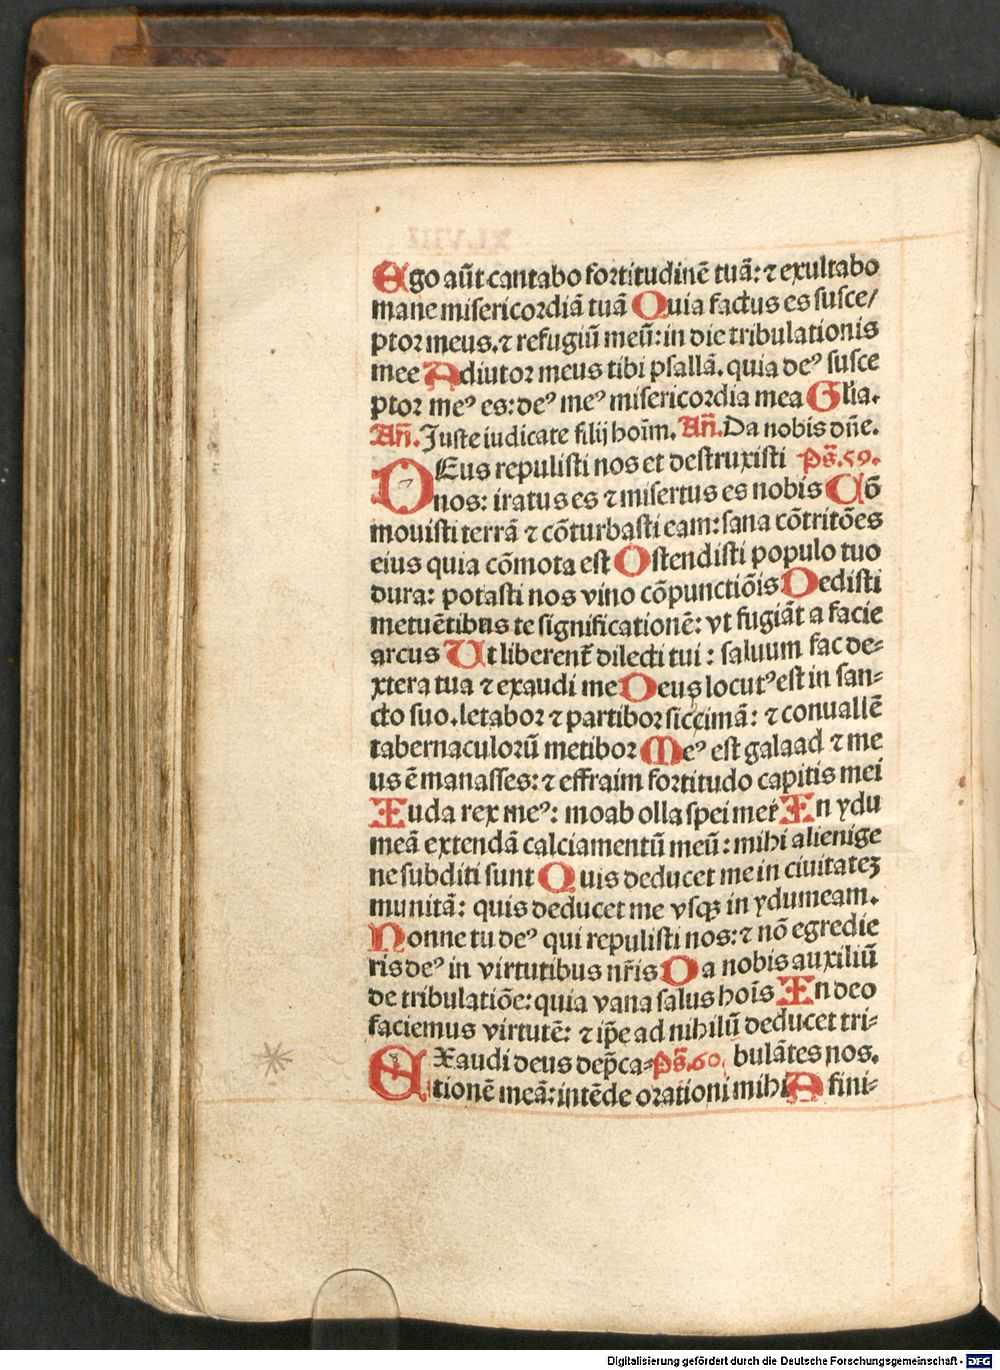 Ego aūt cantabo fortitudinē tuā: ⁊ exultabo
mane misericordiā tuā Quia factus es susce/
ptor meus. ⁊ refugiū meū: in die tribulationis
mee Adiutor meus tibi psallā. quia deꝰ susce
ptor meꝰ es: deꝰ meꝰ misericordia mea Gl̄ia.
Añ. Juste iudicate filij hoīm. Añ. Da nobis dn̄e.
DEus repulisti nos et destruxisti Ps̄. 59.
nos: iratus es ⁊ misertus es nobis Cō
mouisti terrā ⁊ cōturbasti eam: sana cōtritōes
eius quia cōmota est Ostendisti populo tuo
dura: potasti nos vino cōpunctiōis Dedisti
metuētibus te significationē: vt fugiāt a facie
arcus Ut liberent᷑ dilecti tui: saluum fac de-
xtera tua ⁊ exaudi me Deus locutꝰ est in san-
cto suo. letabor ⁊ partibor siccimā: ⁊ conuallē
tabernaculorū metibor Meꝰ est galaad ⁊ me
us ē manasses: ⁊ effraim fortitudo capitis mei
Iuda rex meꝰ: moab olla spei mee In ydu
meā extendā calciamentū meū: mihi alienige
ne subditi sunt Quis deducet me in ciuitatez
munitā: quis deducet me vsqꝫ in ydumeam.
Nonne tu deꝰ qui repulisti nos: ⁊ nō egredie
ris deꝰ in virtutibus nr̄is Da nobis auxiliū
de tribulatiōe: quia vana salus hoīs In deo
faciemus virtutē: ⁊ ip̄e ad nihilū deducet tri-
EXaudi deus dep̄ca- Ps̄. 60. bulātes nos.
tionē meā: intēde orationi mihi A fini-
Digitalisierung gefördert durch die Deutsche Forschungsgemeinschaft - DFG